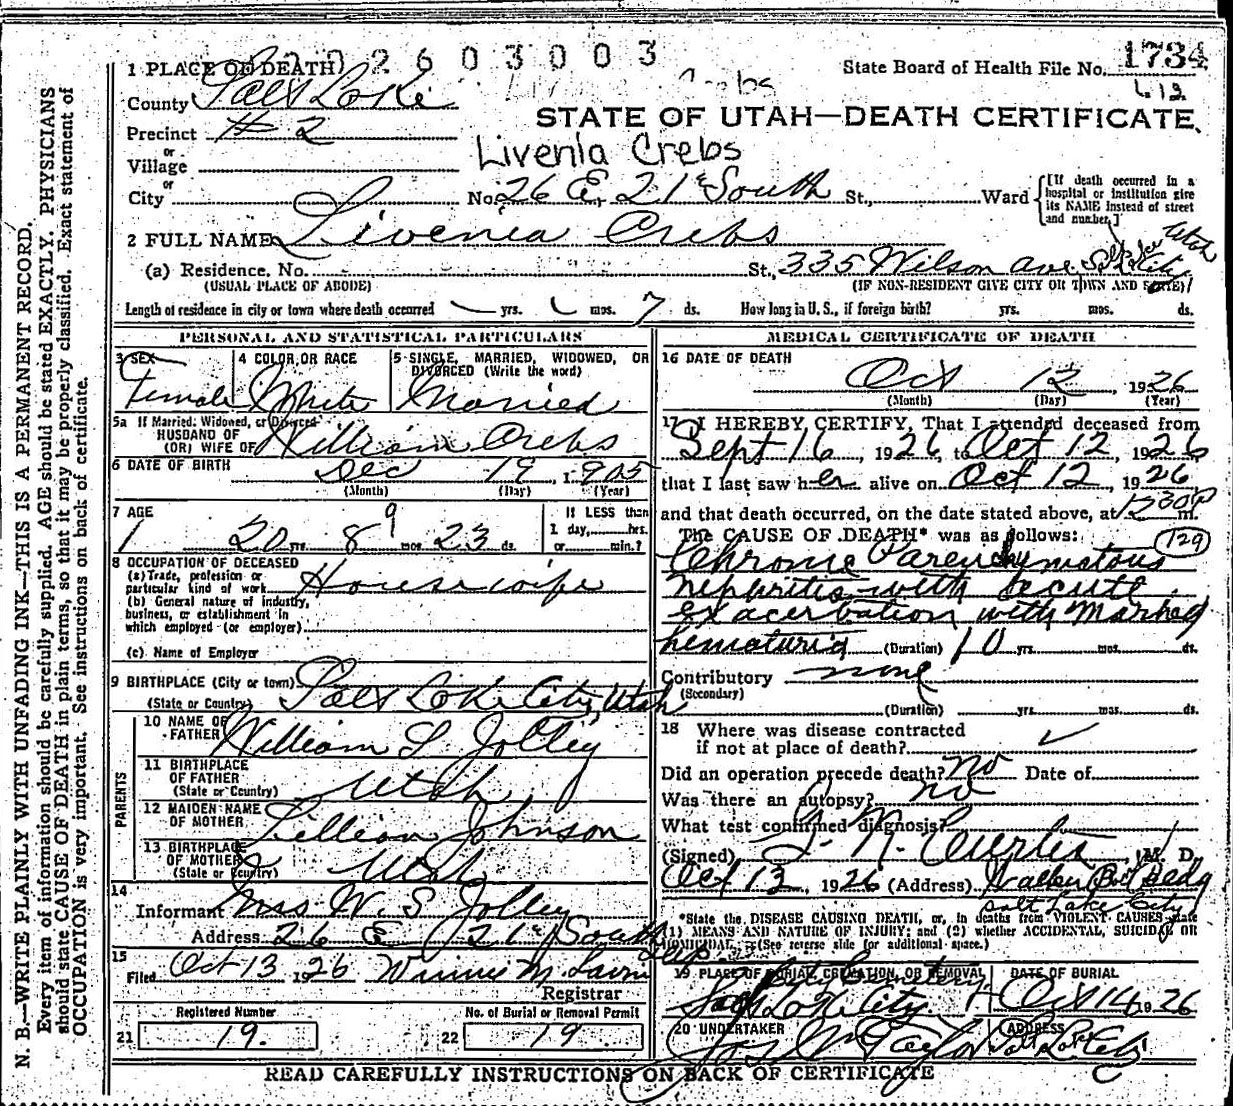 2603003
1 PLACE OF DEATH
State Board of Health File No. 1734
612
County Salt Lake
Crebs
STATE OF UTAH—DEATH CERTIFICATE.
Precinct # 2
or
Village
Livenia Crebs
or
City No. 26 E, 21st South St., Ward
[If death occurred in a
hospital or institution give
its NAME instead of street
and number.]
2 FULL NAME Livenia Crebs
(a) Residence, No. St., 335 Wilson Ave, Salt Lake City Utah
(USUAL PLACE OF ABODE)
(IF NON-RESIDENT GIVE CITY OR TOWN AND STATE)
Length of residence in city or town where death occurred yrs. mos. 7 ds. How long in U. S., if foreign birth? yrs. mos. ds.
PERSONAL AND STATISTICAL PARTICULARS
3 SEX
Female
4 COLOR OR RACE
White
5 SINGLE, MARRIED, WIDOWED, OR
DIVORCED (Write the word)
Married
5a If Married, Widowed, or Divorced
HUSBAND OF
(OR) WIFE OF William Crebs
6 DATE OF BIRTH Dec 19, 1905
(Month) (Day) (Year)
7 AGE
20 yrs. 8 9 mos. 23 ds.
If LESS than
1 day, hrs.
or min.?
8 OCCUPATION OF DECEASED
(a) Trade, profession or
particular kind of work Housewife
(b) General nature of industry,
business, or establishment in
which employed (or employer)
(c) Name of Employer
9 BIRTHPLACE (City or town) Salt Lake City, Utah
(State or Country)
PARENTS
10 NAME OF
FATHER William S. Jolley
11 BIRTHPLACE
OF FATHER
(State or Country) Utah
12 MAIDEN NAME
OF MOTHER Lillian Johnson
13 BIRTHPLACE
OF MOTHER
(State or Country) Utah
14
Informant Mrs W. S. Jolley
Address 26 E 21st South
15
Filed Oct 13 1926 Winnie M.
Registrar
Registered Number
21 19.
No. of Burial or Removal Permit
22 19
MEDICAL CERTIFICATE OF DEATH
16 DATE OF DEATH
Oct 12, 1926
(Month) (Day) (Year)
17 I HEREBY CERTIFY, That I attended deceased from
Sept 16, 1926, to Oct 12, 1926
that I last saw her alive on Oct 12, 1926,
and that death occurred, on the date stated above, at 12 30 P m.
The CAUSE OF DEATH* was as follows: 129
Chronic Parenchymatous
nephritis with acute
exacerbation with marked
hematuria (Duration) 10 yrs. mos. ds.
Contributory none
(Secondary)
(Duration) yrs. mos. ds.
18 Where was disease contracted
if not at place of death?
Did an operation precede death? no Date of
Was there an autopsy? no
What test confirmed diagnosis?
(Signed) J. N. Curtis, M. D.
Oct 13, 1926 (Address) Walker Bk Bldg
Salt Lake City
*State the DISEASE CAUSING DEATH, or, in deaths from VIOLENT CAUSES state
(1) MEANS AND NATURE OF INJURY; and (2) whether ACCIDENTAL, SUICIDAL OR
HOMICIDAL. (See reverse side for additional space.)
Dep.
19 PLACE OF BURIAL, CREMATION, OR REMOVAL
City Cemetery
Salt Lake City.
DATE OF BURIAL
Oct 14 1926
20 UNDERTAKER
Jos Wm Taylor
ADDRESS
Salt Lake City
READ CAREFULLY INSTRUCTIONS ON BACK OF CERTIFICATE
N. B.—WRITE PLAINLY WITH UNFADING INK—THIS IS A PERMANENT RECORD.
Every item of information should be carefully supplied. AGE should be stated EXACTLY. PHYSICIANS
should state CAUSE OF DEATH in plain terms, so that it may be properly classified. Exact statement of
OCCUPATION is very important. See instructions on back of certificate.